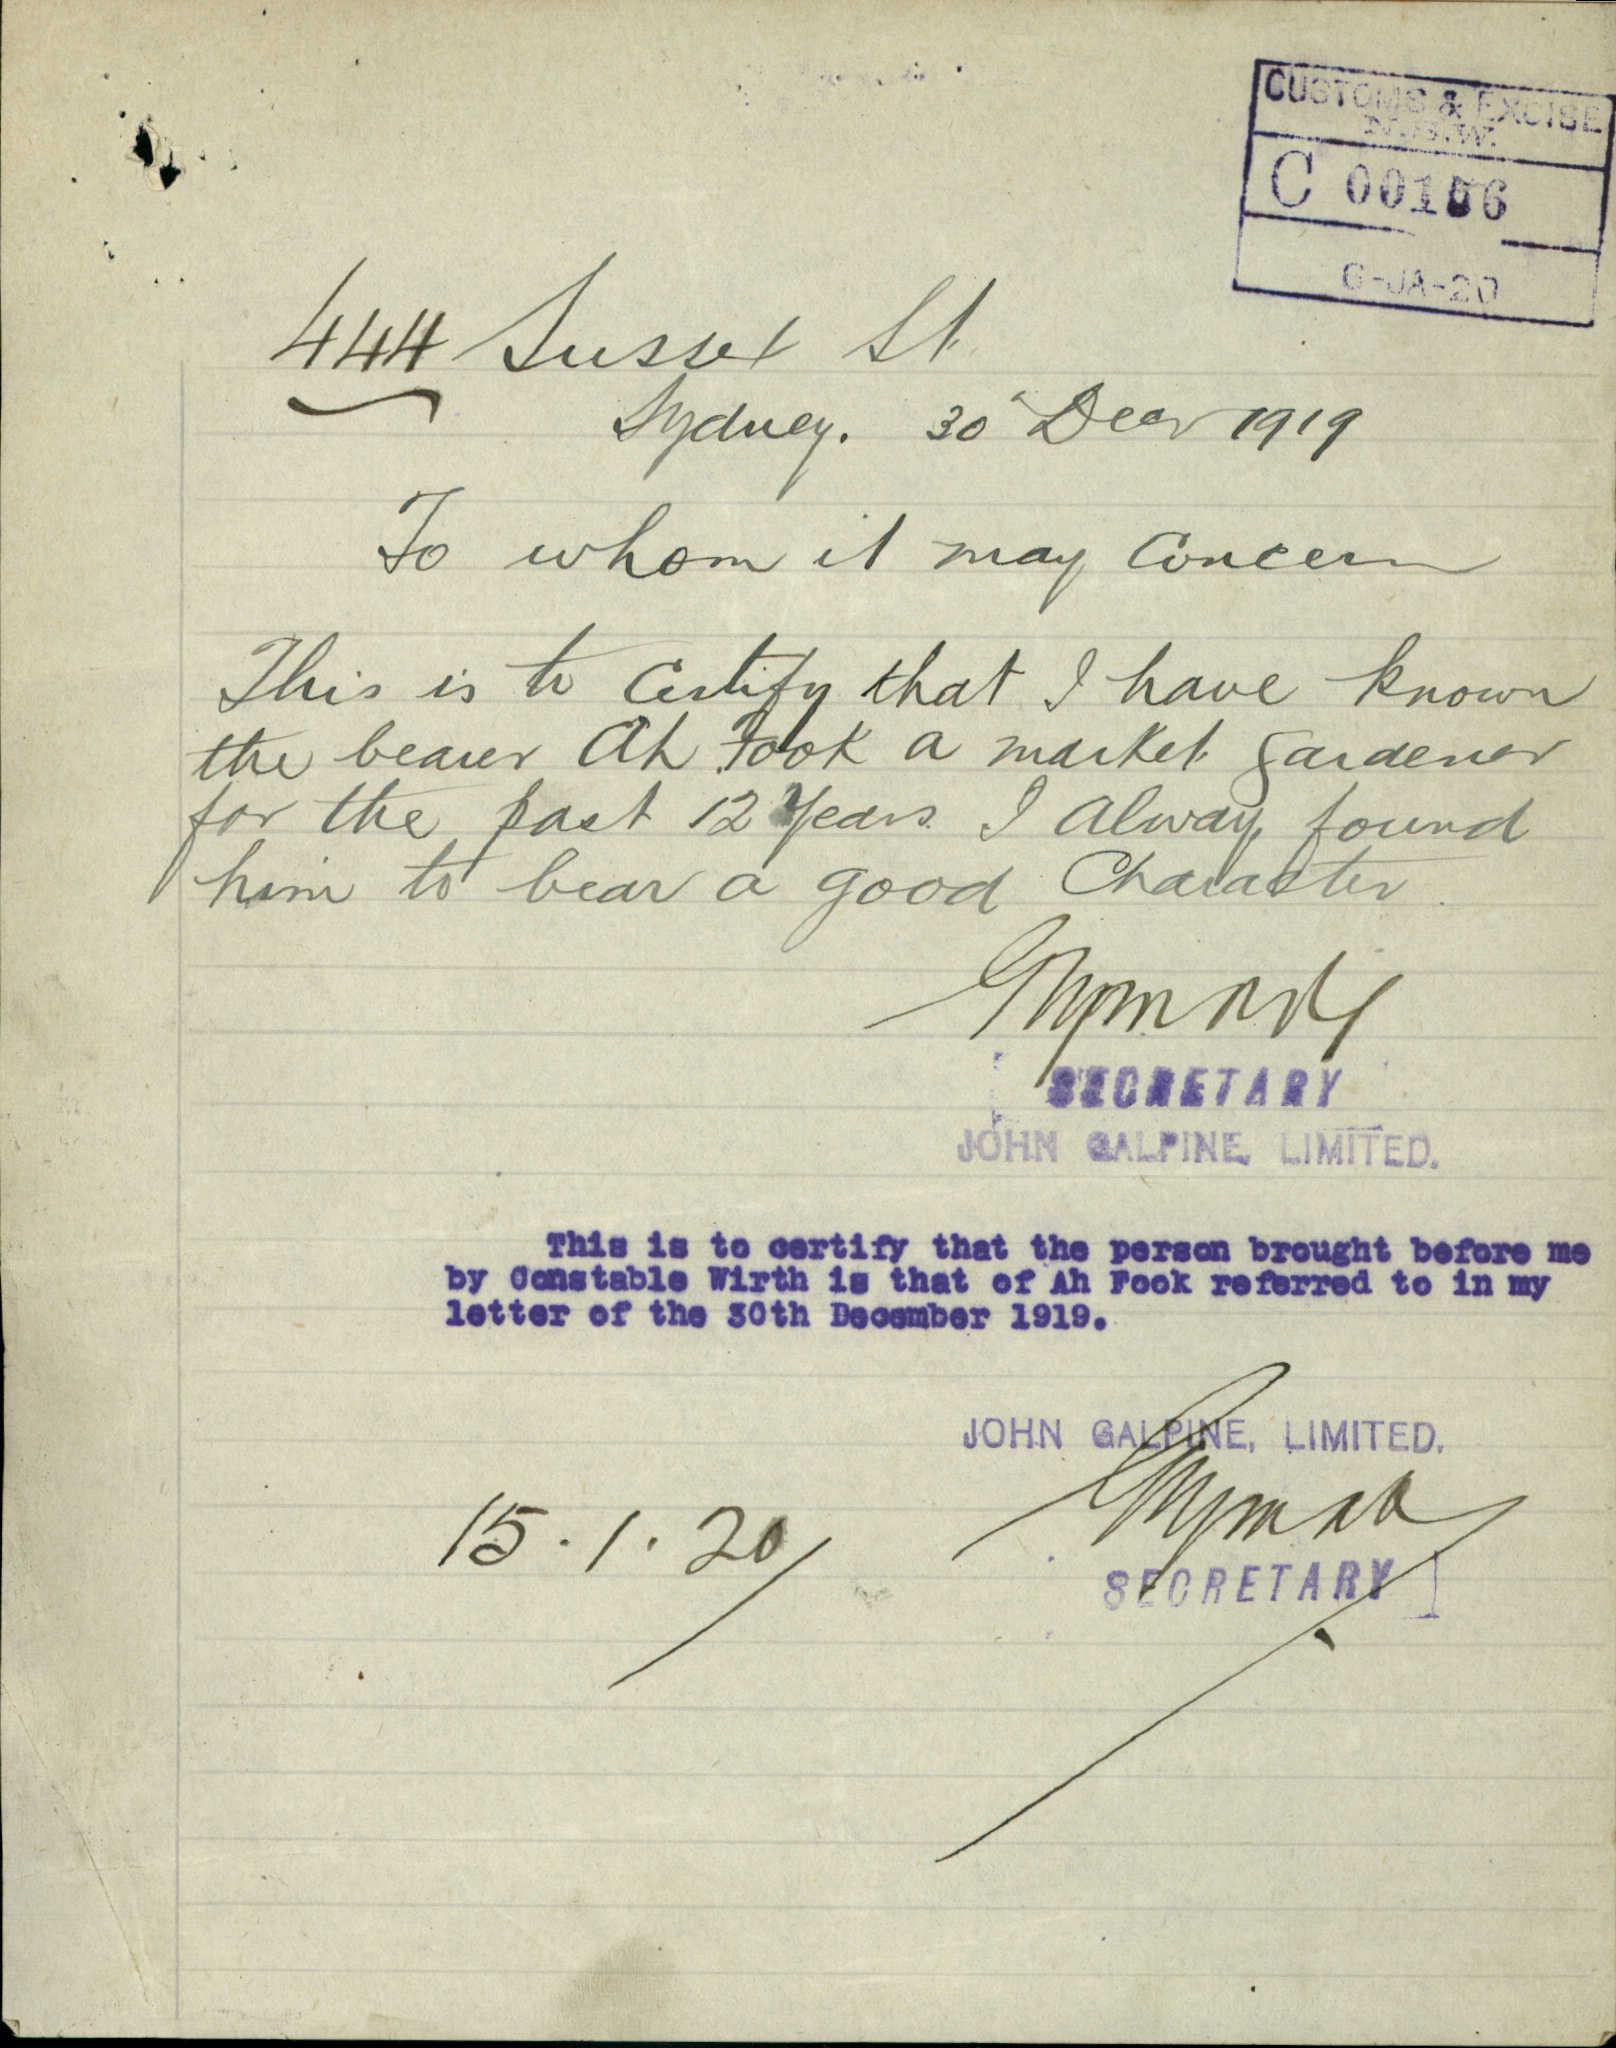 CUSTOMS & EXCISE
N.S.W.
C 00156
6-JA-20
444 Sussex St.
Sydney. 30 Decr 1919
To whom it may Concern
This is to Certify that I have known
the bearer Ah Fook a market gardener
for the past 12 Years. I always found
him to bear a good Character.
SECRETARY
JOHN GALPINE, LIMITED.
This is to certify that the person brought before me
by Constable Wirth is that of Ah Fook referred to in my
letter of the 30th December 1919.
JOHN GALPINE, LIMITED.
15.1.20
SECRETARY